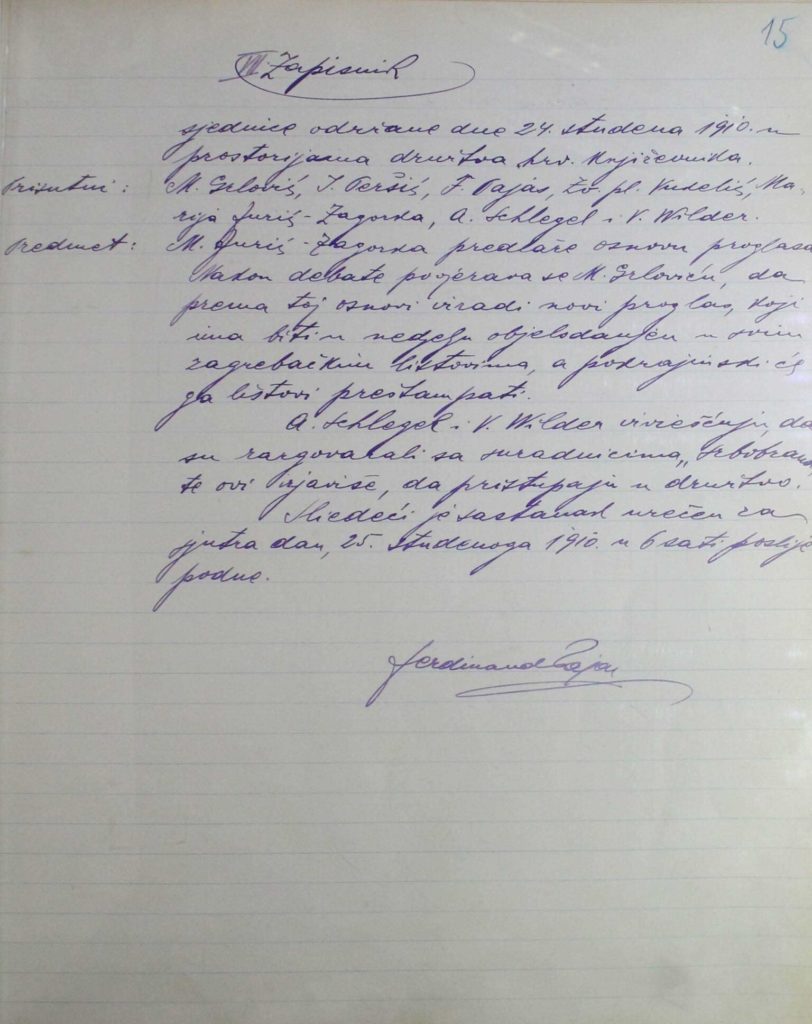 15
III. Zapisnik
sjednice održane dne 24. studena 1910. u
prostorijama društva hrv. književnika.
Prisutni: M. Grlović, I. Peršić, F. Pajás, Žv. pl. Kudelić, Ma-
rija Jurić-Zagorka, A. Schlegel i V. Wilder.
Predmet: M. Jurić-Zagorka predlaže osnovu proglasa
Nakon debate povjerava se M. Grloviću, da
prema toj osnovi izradi novi proglas, koji
ima biti u nedjelju objelodanjen u svim
zagrebačkim listovima, a pokrajinski će
ga listovi preštampati.
A. Schlegel i V. Wilder izviešćuju, da
su razgovarali sa suradnicima „Srbobrana
te ovi izjaviše, da pristupaju u društvo.
Sliedeći je sastanak urečen za
sjutra dan, 25. studenoga 1910. u 6 sati poslije
podne.
Ferdinand Pajas